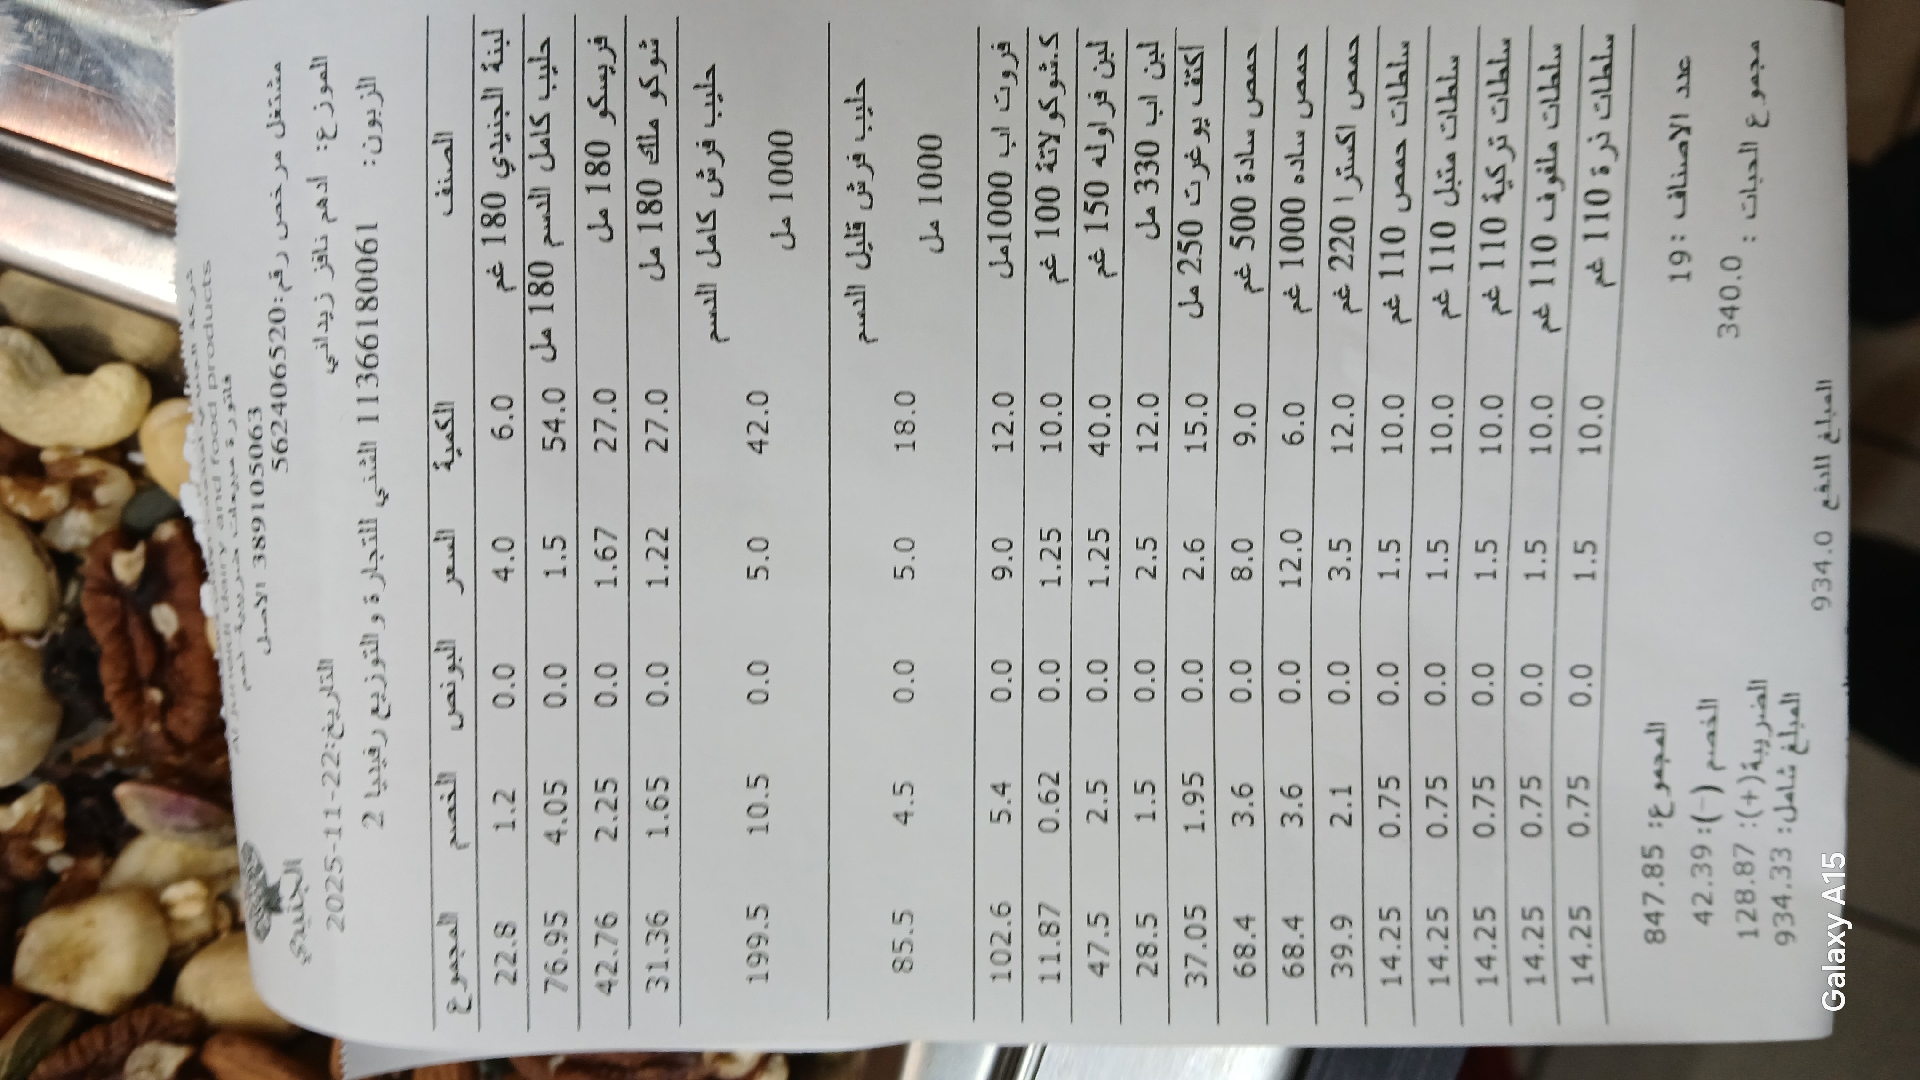 الجنيدي
Al Juneidi dairy and food products
فاتورة مبيعات ضريبية
389105063 الاصل
مشتغل مرخص رقم:562406520
الموزع: ادهم نافز زيداني
التاريخ:22-11-2025
الزبون: 1136618006 الثني للتجارة والتوزيع رفيديا 2
الصنف الكمية السعر البونص الخصم المجموع
لبنة الجنيدي 180 غم 6.0 4.0 0.0 1.2 22.8
حليب كامل الدسم 180 مل 54.0 1.5 0.0 4.05 76.95
فريسكو 180 مل 27.0 1.67 0.0 2.25 42.76
شوكو ملك 180 مل 27.0 1.22 0.0 1.65 31.36
حليب فرش كامل الدسم
1000 مل 42.0 5.0 0.0 10.5 199.5
حليب فرش قليل الدسم
1000 مل 18.0 5.0 0.0 4.5 85.5
فروت اب 1000مل 12.0 9.0 0.0 5.4 102.6
ك.شوكولاتة 100 غم 10.0 1.25 0.0 0.62 11.87
لبن فراوله 150 غم 40.0 1.25 0.0 2.5 47.5
لبن اب 330 مل 12.0 2.5 0.0 1.5 28.5
اكتف يوغرت 250 مل 15.0 2.6 0.0 1.95 37.05
حمص سادة 500 غم 9.0 8.0 0.0 3.6 68.4
حمص ساده 1000 غم 6.0 12.0 0.0 3.6 68.4
حمص اكسترا 220 غم 12.0 3.5 0.0 2.1 39.9
سلطات حمص 110 غم 10.0 1.5 0.0 0.75 14.25
سلطات متبل 110 غم 10.0 1.5 0.0 0.75 14.25
سلطات تركية 110 غم 10.0 1.5 0.0 0.75 14.25
سلطات ملفوف 110 غم 10.0 1.5 0.0 0.75 14.25
سلطات ذرة 110 غم 10.0 1.5 0.0 0.75 14.25
عدد الاصناف : 19
المجموع: 847.85
مجموع الحبات : 340.0
الخصم (-): 42.39
الضريبة(+): 128.87
المبلغ شامل: 934.33
المبلغ للدفع 934.0
Galaxy A15